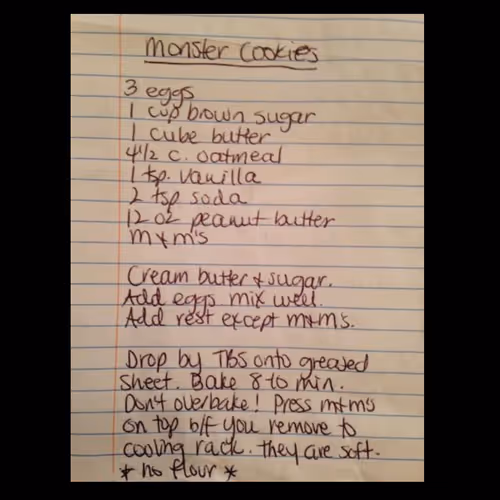 Monster Cookies
3 eggs
1 cup brown sugar
1 cube butter
4 1/2 c. oatmeal
1 tsp. vanilla
2 tsp soda
12 oz peanut butter
m+m's
Cream butter + sugar.
Add eggs mix well.
Add rest except m+m's.
Drop by TBS onto greased
sheet. Bake 8-10 min.
Don't overbake! Press m+m's
on top b/f you remove to
cooling rack. they are soft.
* no flour *